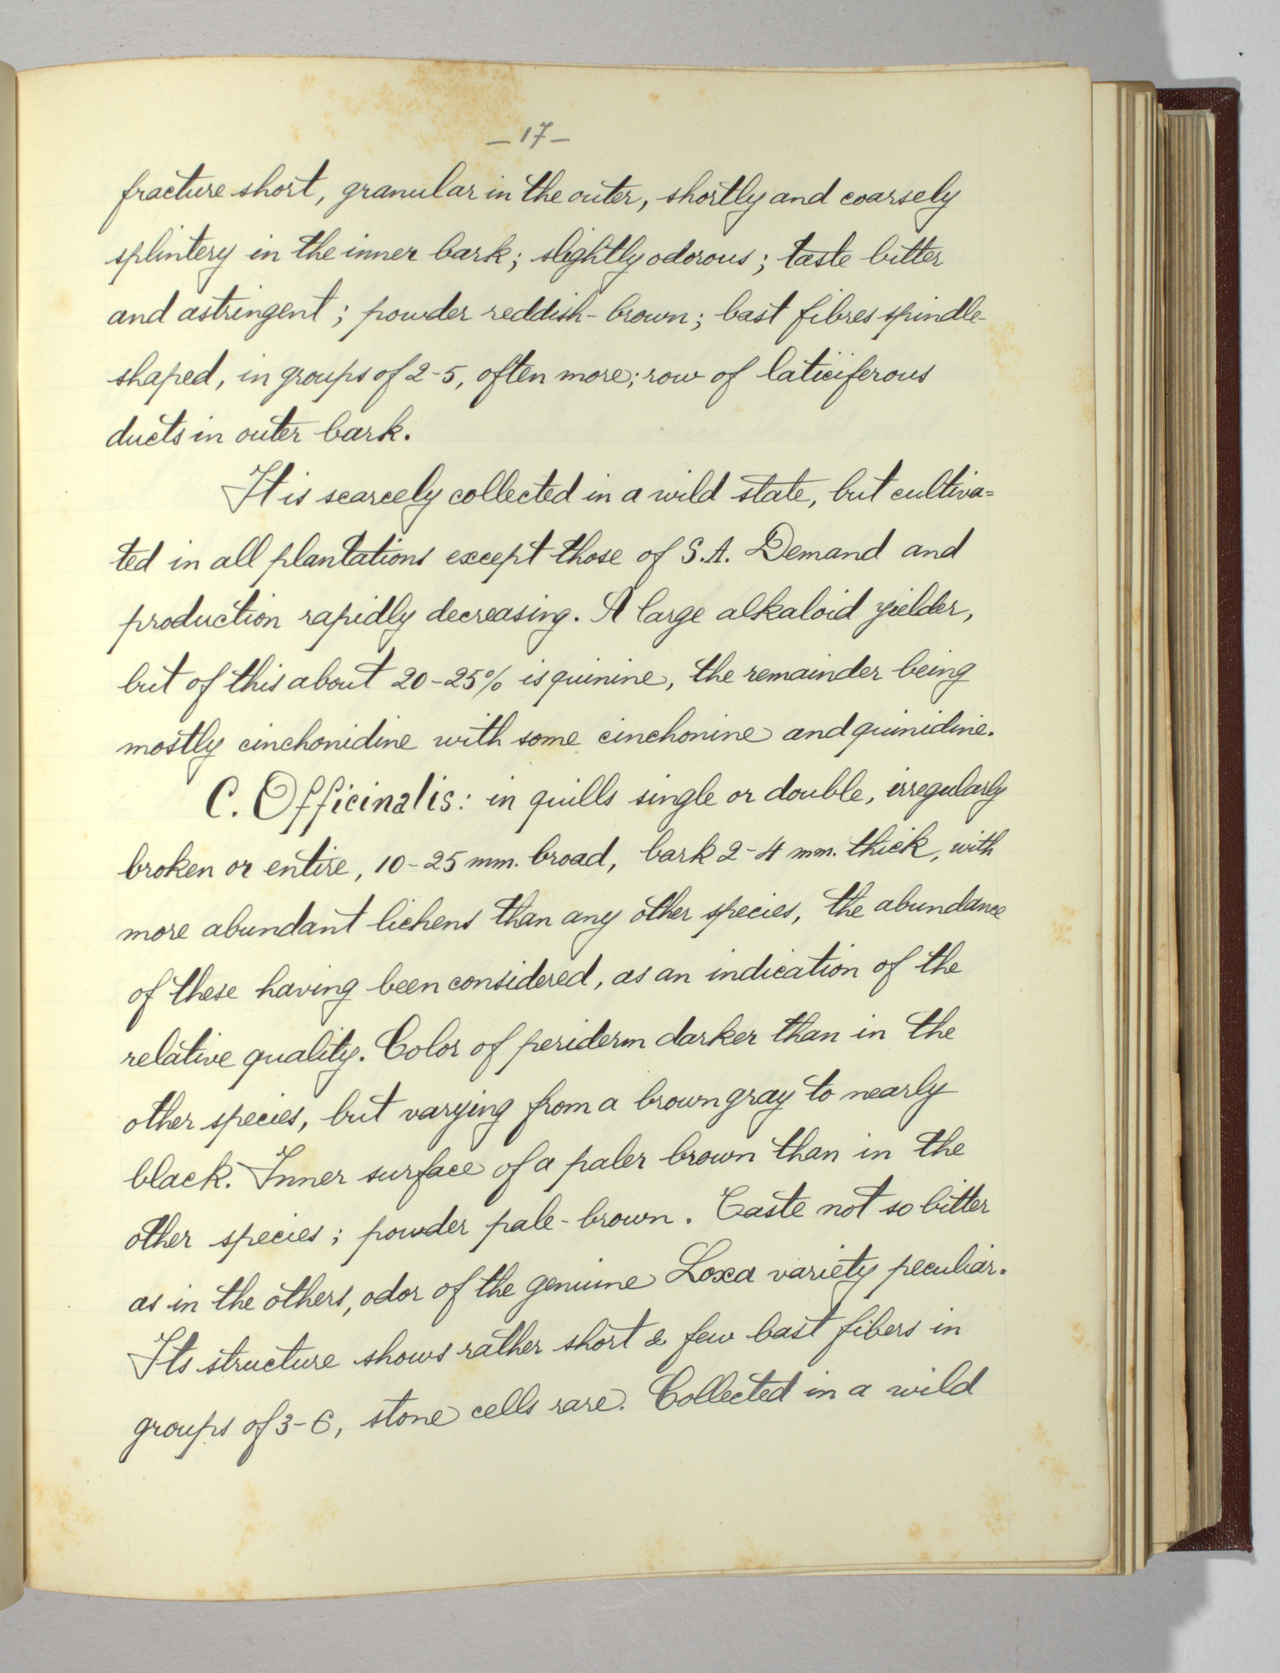 – 17 –
fracture short, granular in the outer, shortly and coarsely
splintery in the inner bark; slightly odorous; taste bitter
and astringent; powder reddish-brown; bast fibres spindle-
shaped, in groups of 2-5, often more; row of laticiferous
ducts in outer bark.
It is scarcely collected in a wild state, but cultiva=
ted in all plantations except those of S.A. Demand and
production rapidly decreasing. A large alkaloid yielder,
but of this about 20-25% is quinine, the remainder being
mostly cinchonidine with some cinchonine and quinidine.
C. Officinalis: in quills single or double, irregularly
broken or entire, 10-25 mm. broad, bark 2-4 mm. thick, with
more abundant lichens than any other species, the abundance
of these having been considered, as an indication of the
relative quality. Color of periderm darker than in the
other species, but varying from a brown gray to nearly
black. Inner surface of a paler brown than in the
other species; powder pale-brown. Taste not so bitter
as in the others, odor of the genuine Loxa variety peculiar.
Its structure shows rather short & few bast fibers in
groups of 3-6, stone cells rare. Collected in a wild